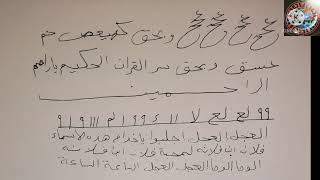 وبحق كهيعص حم
عسق وبحق سر القران الحكيم يا راحم
الراحمين
٩٩ لع لع لا ١١ ٤ ٩ ٩ ١ م ١١١ ٩ ١ ٩
العجل العجل اجلبوا يا خدام هذه الاسماء
فلان ابن فلانه لمحبة فلان ابن فلانه
الوحا الوحا العجل العجل الساعة الساعة